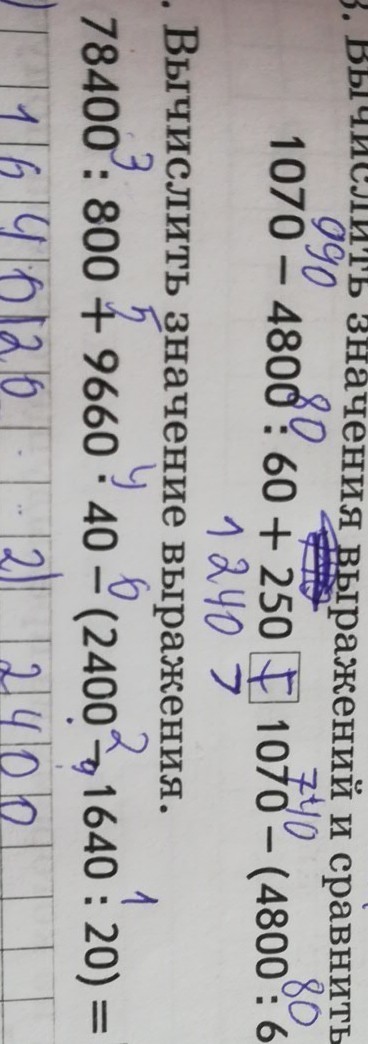 3. Вычислить значения выражений и сравнить
990 80 740 80
1070 – 4800 : 60 + 250 1070 – (4800 : 6
1240 >
. Вычислить значение выражения.
3 5 4 6 2 1
78400 : 800 + 9660 · 40 – (2400 – 1640 : 20) =
1640 20 2) 2400